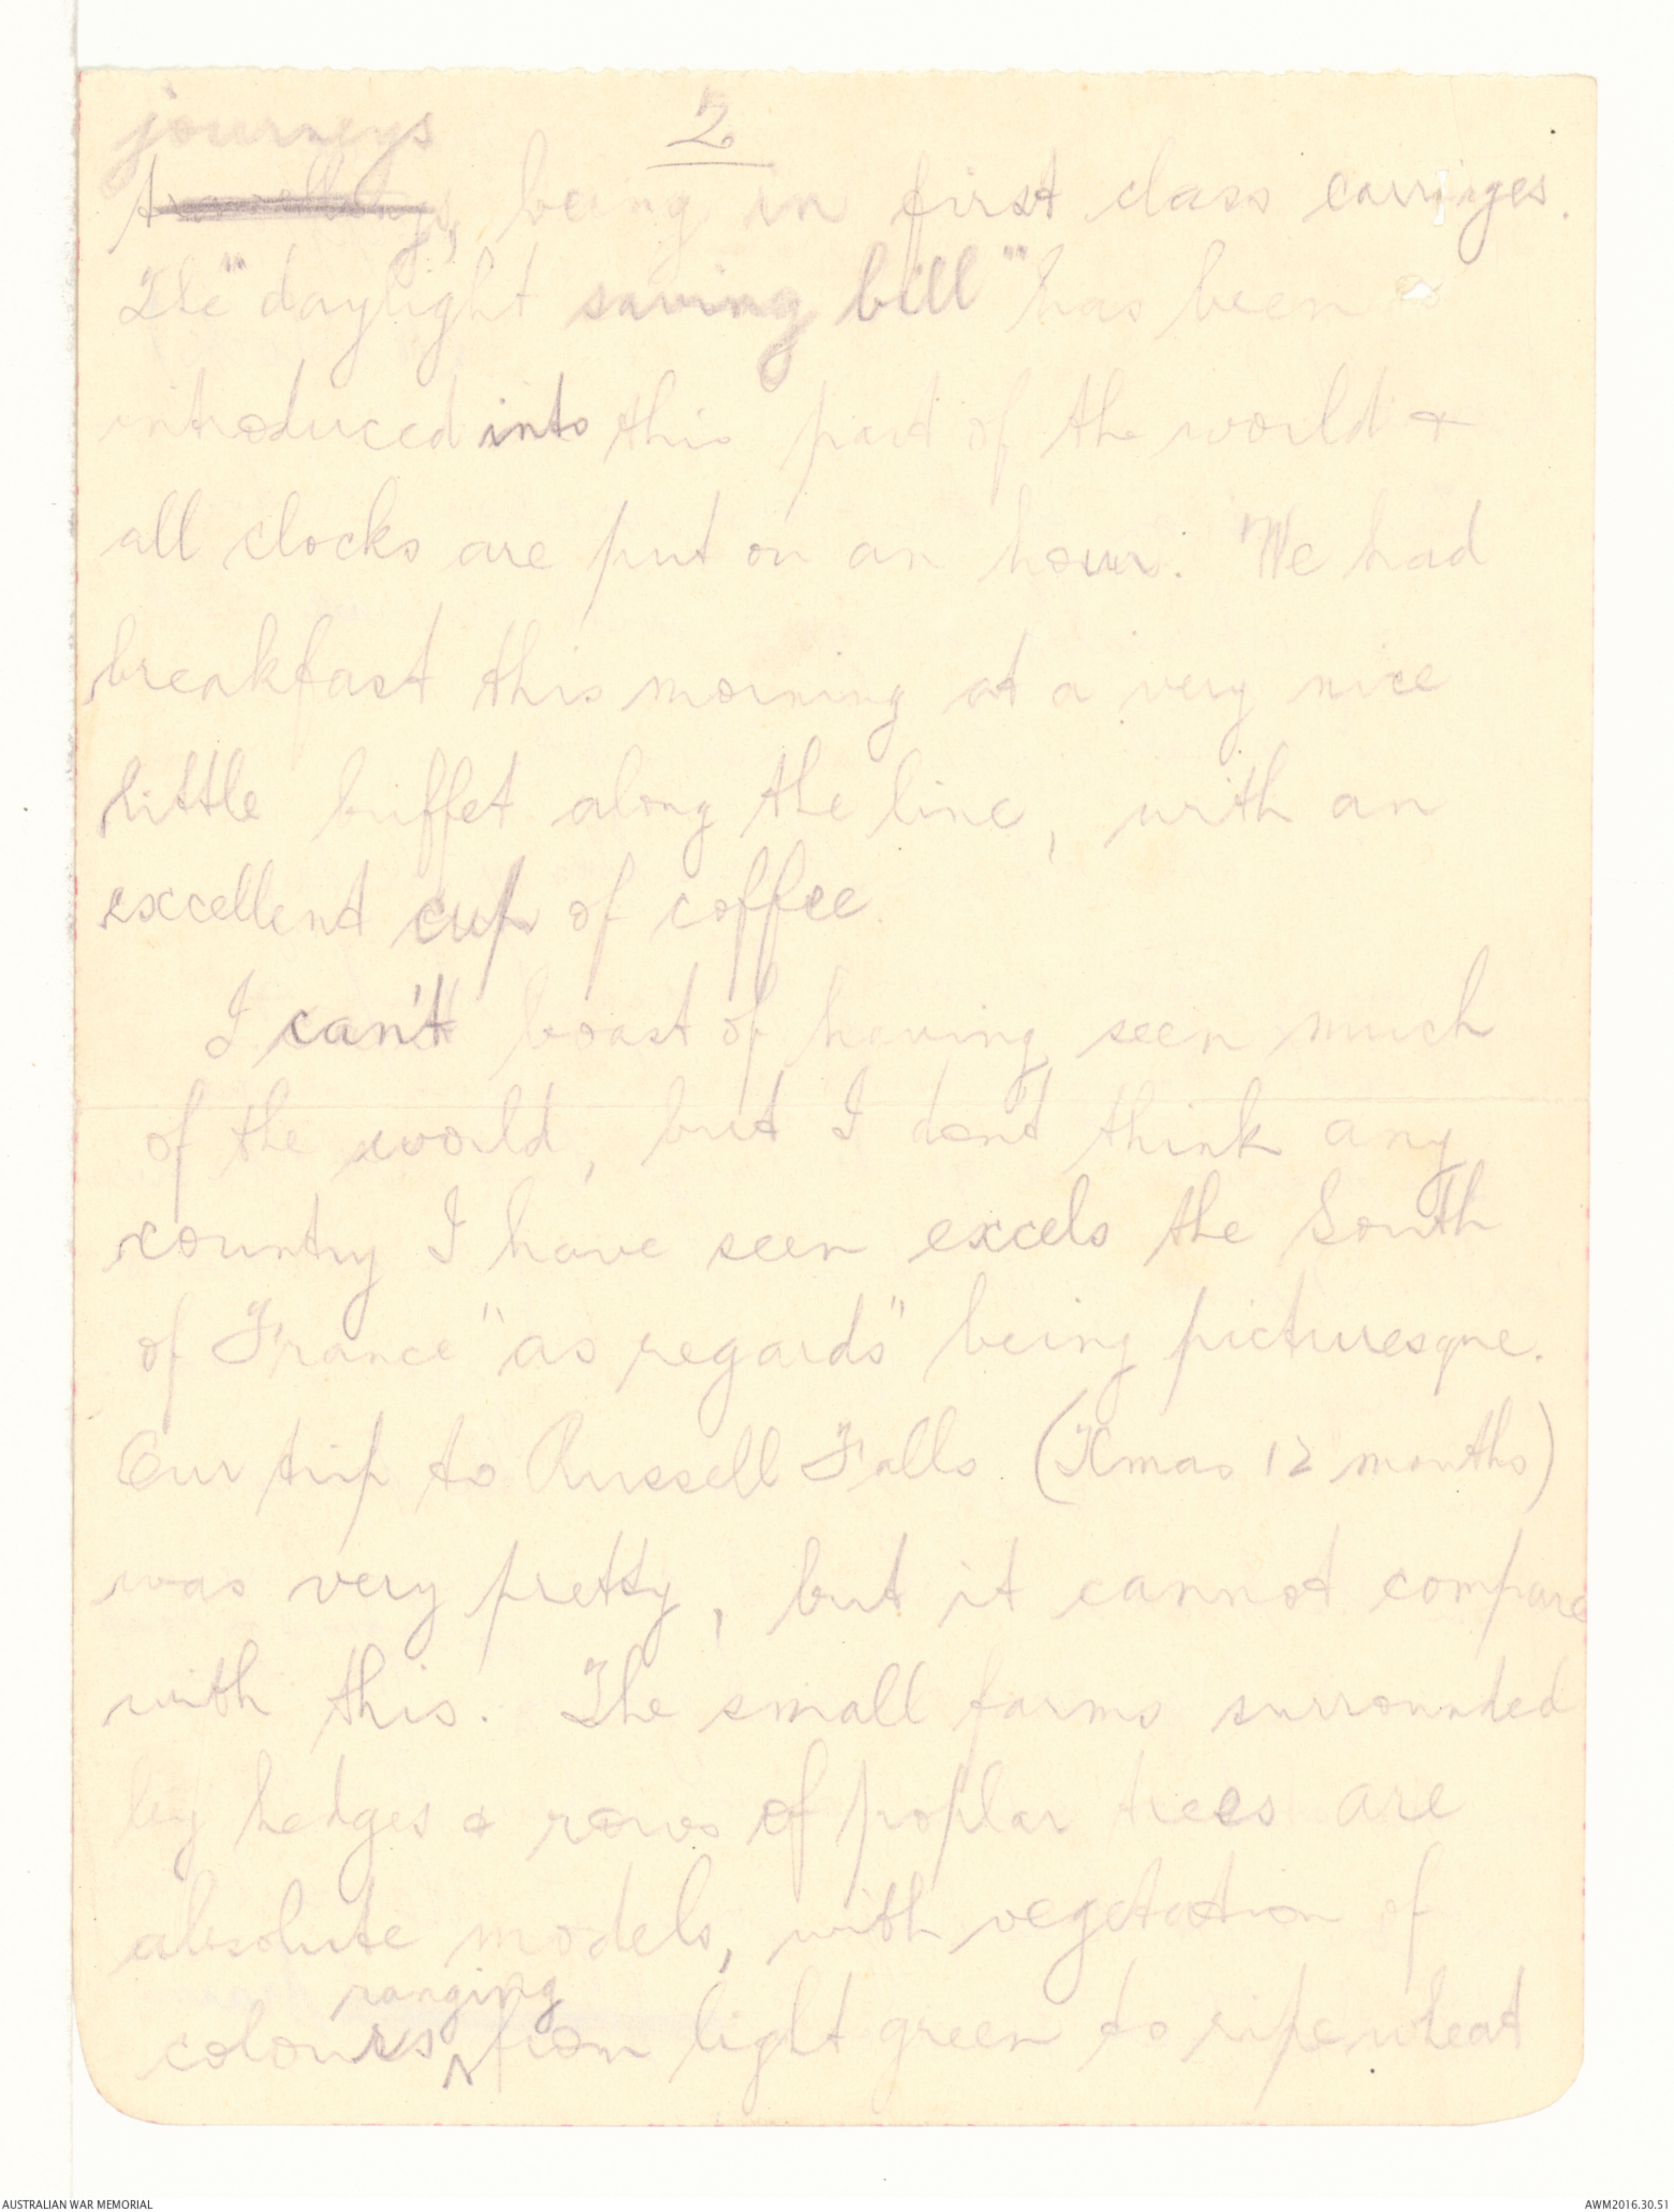 2
journeys
travellings, being in first class carriages.
The "daylight saving bill" has been
introduced into this part of the world &
all clocks are put on an hour. We had
breakfast this morning at a very nice
little buffet along the line, with an
excellent cup of coffee.
I can't boast of having seen much
of the world, but I dont think any
country I have seen excels the South
of France "as regards" being picturesque.
Our trip to Russell Falls (Xmas 12 months)
was very pretty, but it cannot compare
with this. The small farms surrounded
by hedges & rows of poplar trees are
absolute models, with vegetation of
ranging
colours from light green to ripe wheat
AUSTRALIAN WAR MEMORIAL
AWM2016.30.51